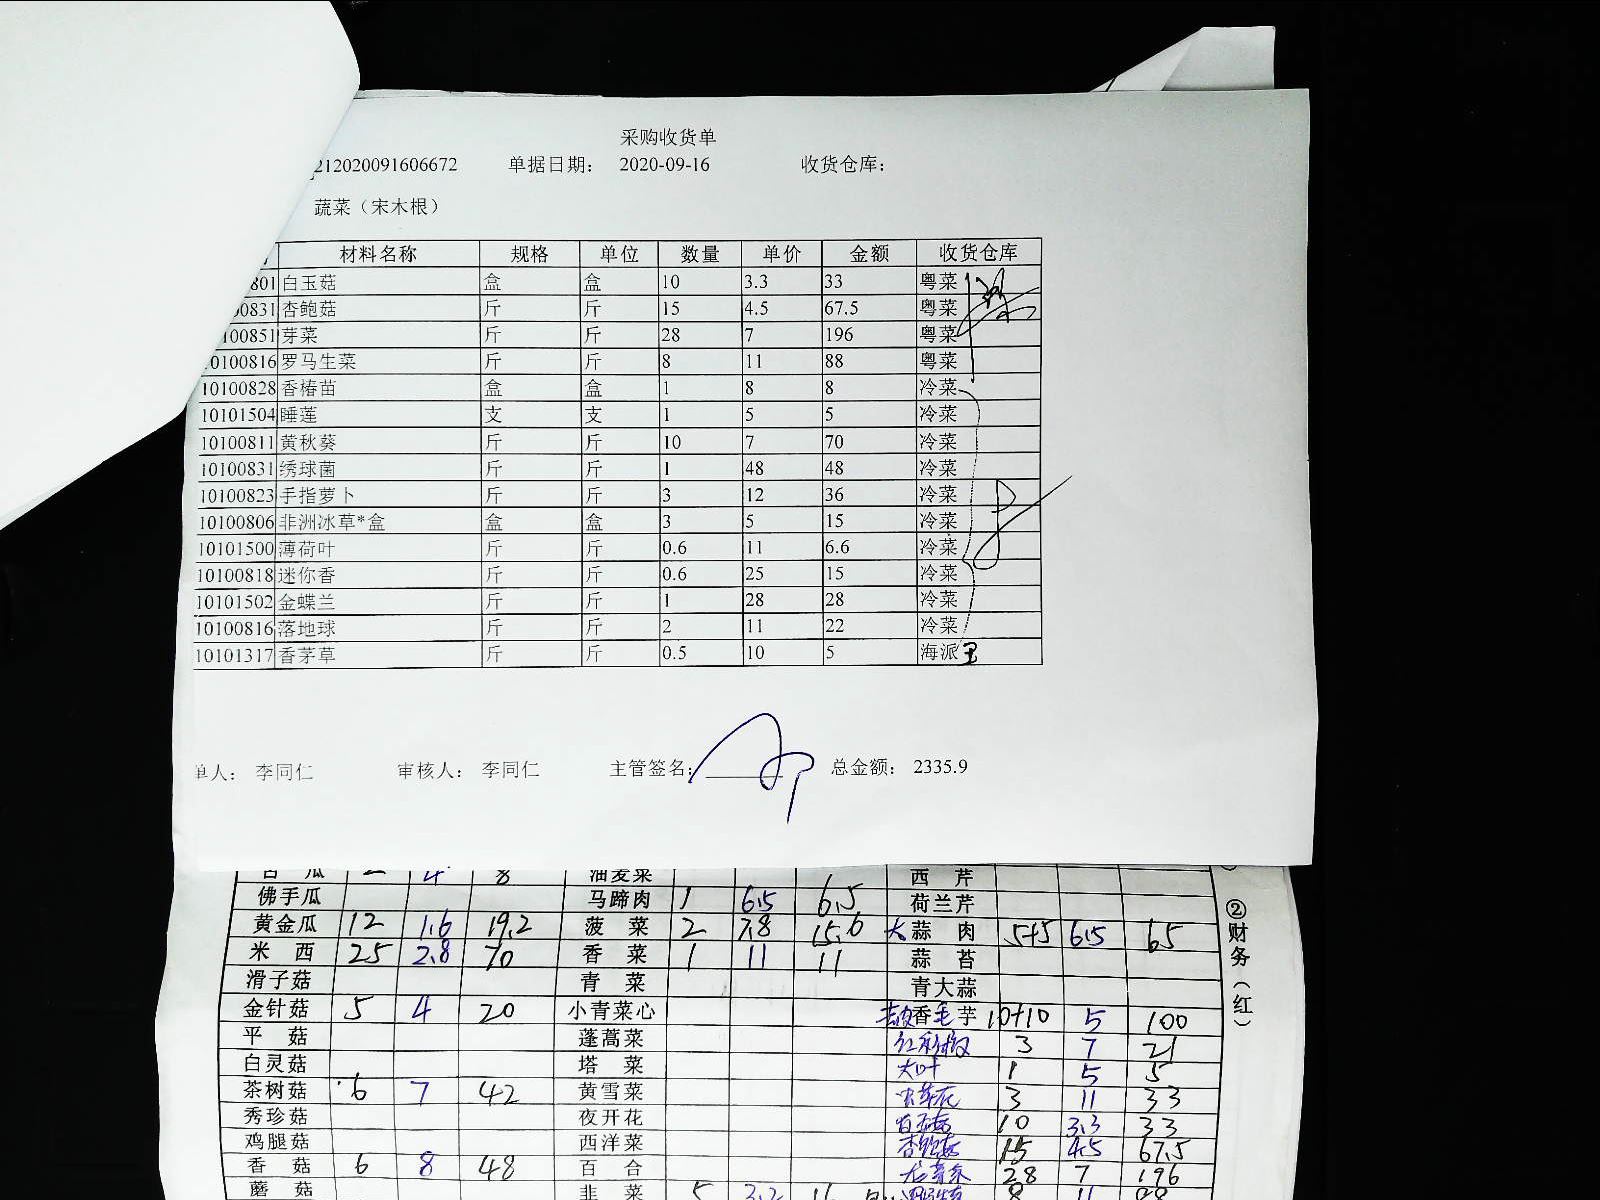 采购收货单
212020091606672 单据日期： 2020-09-16 收货仓库：
蔬菜（宋木根）
材料名称 规格 单位 数量 单价 金额 收货仓库
801 白玉菇 盒 盒 10 3.3 33 粤菜
00831 杏鲍菇 斤 斤 15 4.5 67.5 粤菜
100851 芽菜 斤 斤 28 7 196 粤菜
10100816 罗马生菜 斤 斤 8 11 88 粤菜
10100828 香椿苗 盒 盒 1 8 8 冷菜
10101504 睡莲 支 支 1 5 5 冷菜
10100811 黄秋葵 斤 斤 10 7 70 冷菜
10100831 绣球菌 斤 斤 1 48 48 冷菜
10100823 手指萝卜 斤 斤 3 12 36 冷菜
10100806 非洲冰草*盒 盒 盒 3 5 15 冷菜
10101500 薄荷叶 斤 斤 0.6 11 6.6 冷菜
10100818 迷你香 斤 斤 0.6 25 15 冷菜
10101502 金蝶兰 斤 斤 1 28 28 冷菜
10100816 落地球 斤 斤 2 11 22 冷菜
10101317 香茅草 斤 斤 0.5 10 5 海派 王
单人： 李同仁 审核人： 李同仁 主管签名： 总金额： 2335.9
白 瓜 2 4 8 油麦菜 西 芹
佛手瓜 马蹄肉 1 6.5 6.5 荷兰芹
黄金瓜 12 1.6 19.2 菠 菜 2 7.8 15.6 大蒜 肉 5+5 6.5 65
米 西 25 2.8 70 香 菜 1 11 11 蒜 苔
滑子菇 青 菜 青大蒜
金针菇 5 4 20 小青菜心 去皮香毛芋 10+10 5 100
平 菇 蓬蒿菜 3 7 21
白灵菇 塔 菜 大叶 1 5 5
茶树菇 6 7 42 黄雪菜 3 11 33
秀珍菇 夜开花 白玉菇 10 3.3 33
鸡腿菇 西洋菜 杏鲍菇 15 4.5 67.5
香 菇 6 8 48 百 合 28 7 196
蘑 菇 韭 菜 5 3.2 16 8 11 88
②财务（红）